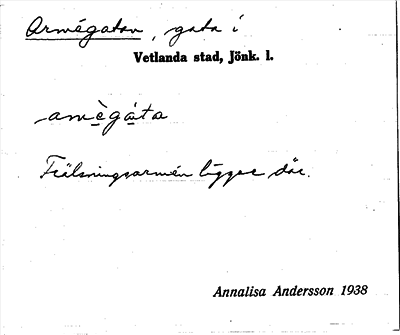 Armégatan, gata i
Vetlanda stad, Jönk. l.
armè̱gá̱ta
Frälsningsarmén ligger där.
Annalisa Andersson 1938